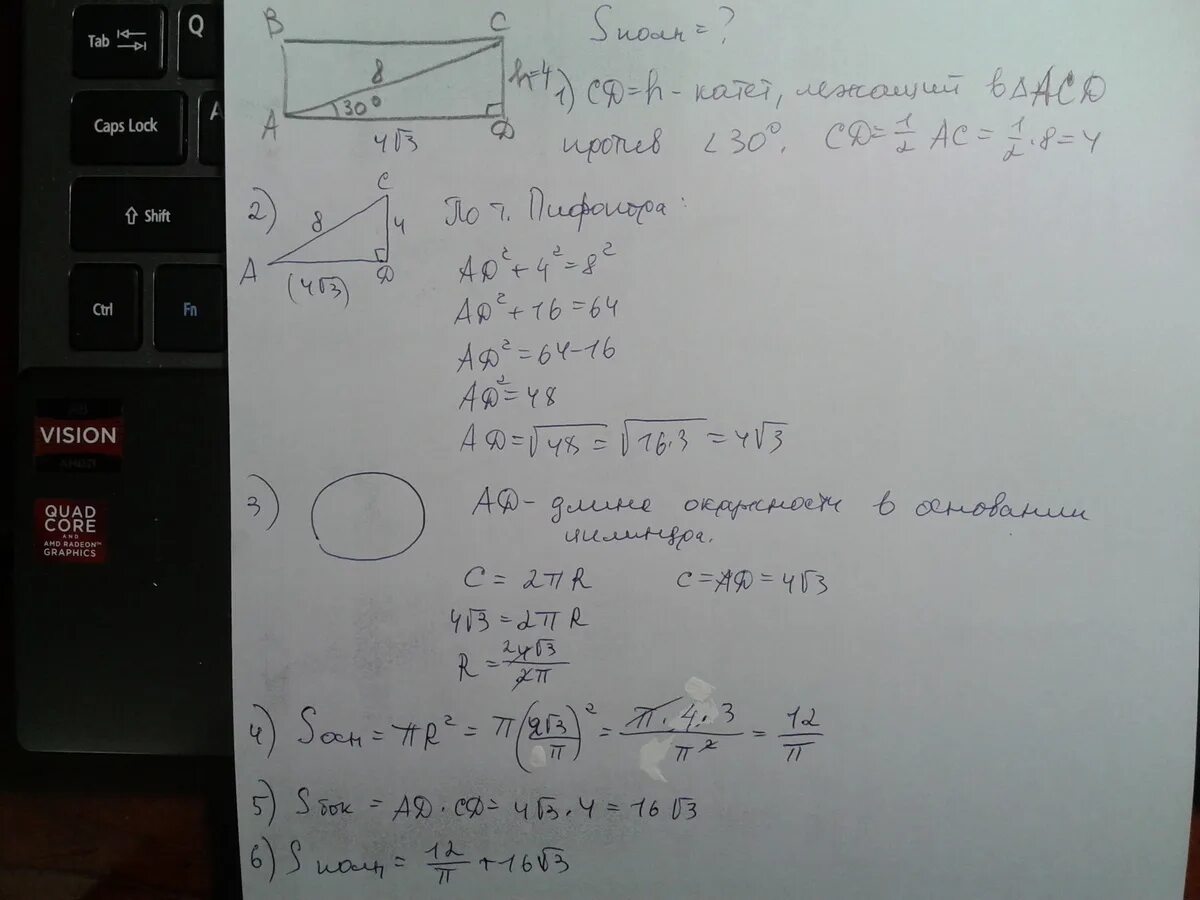 Tab
Q
Caps Lock
A
Shift
Ctrl
Fn
VISION
AMD
QUAD
CORE
AND
AMD RADEON™
GRAPHICS
B
C
8
30°
h=4
A
D
4√3
Sполн = ?
1) CD=h - катет, лежащий в △ACD
против <30°. CD = 1/2 AC = 1/2 · 8 = 4
2)
C
8
4
A
D
(4√3)
По т. Пифагора:
AD² + 4² = 8²
AD² + 16 = 64
AD² = 64-16
AD² = 48
AD = √48 = √16·3 = 4√3
3)
AD - длина окружности в основании
цилиндра.
C = 2πR
C = AD = 4√3
4√3 = 2πR
R = 2 4√3 / 2π
4) Sосн = πR² = π(2√3/π)² = π·4·3/π² = 12/π
5) Sбок = AD·CD = 4√3·4 = 16√3
6) Sполн = 12/π + 16√3